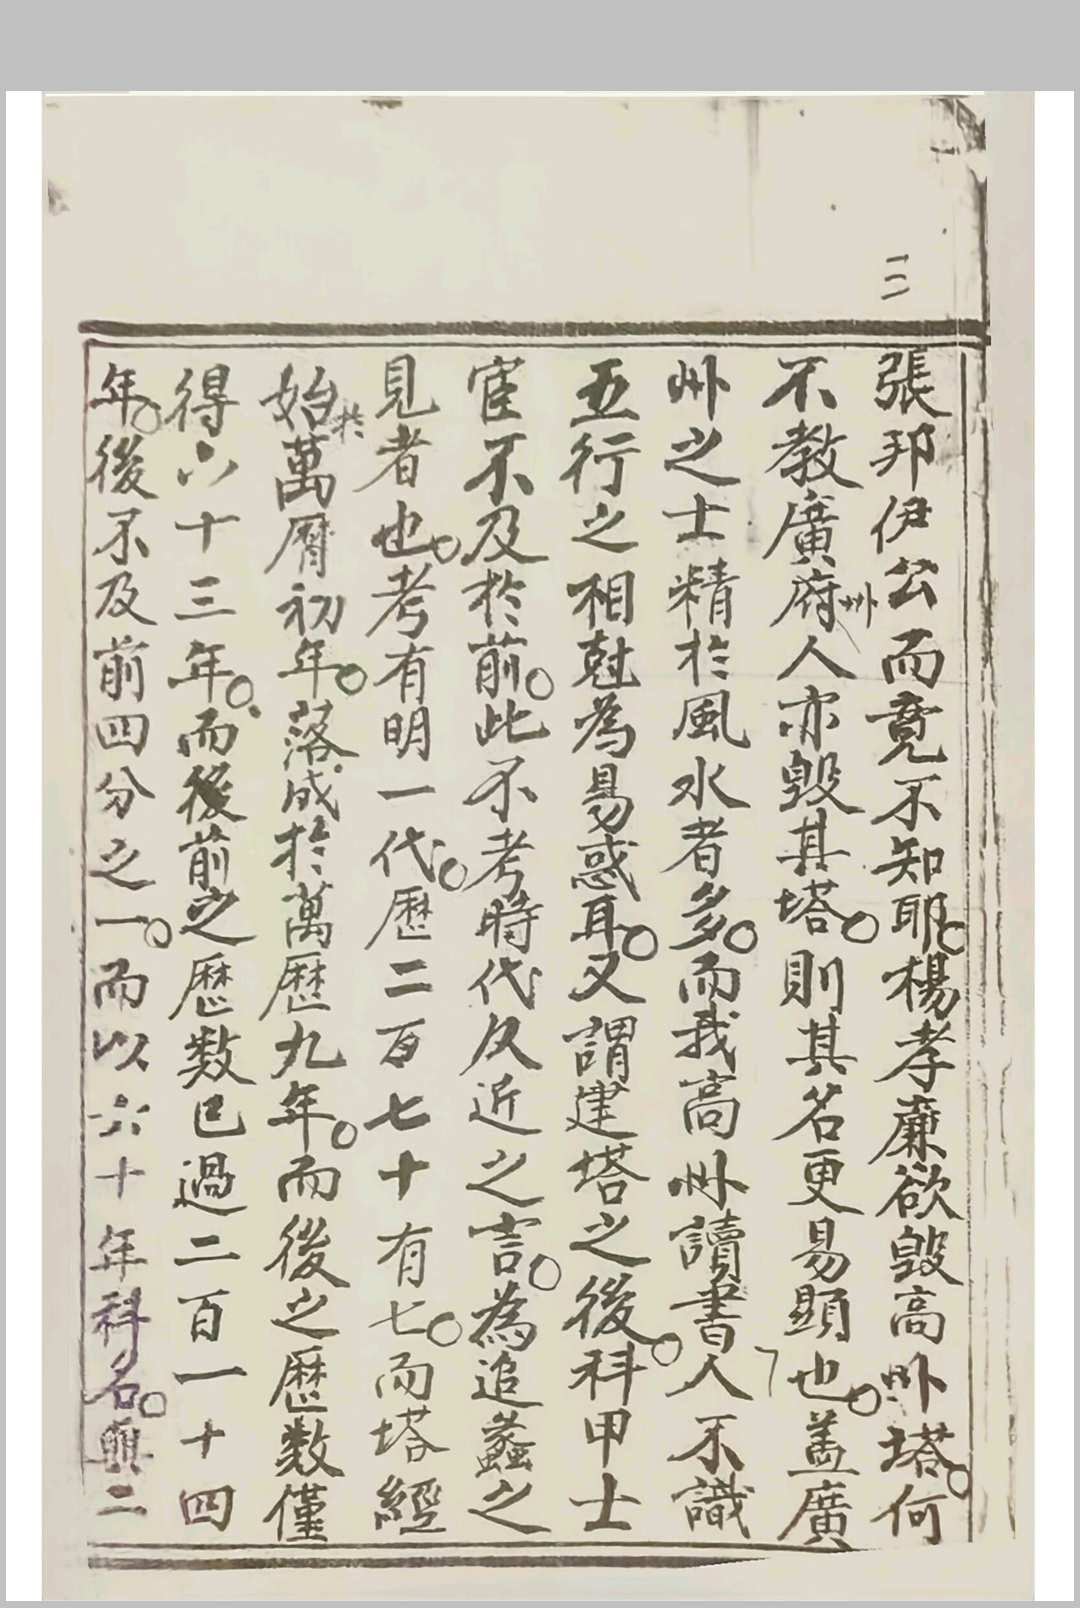 三
張邦伊公而竟不知耶。楊孝廉欲毀高州塔。何
不教廣府州人亦毀其塔。則其名更易顯也。蓋廣
州之士精於風水者多。而我高州讀書人不識
五行之相尅為易惑耳。又謂建塔之後。科甲士
宦不及於前。此不考時代久近之言。為追蠡之
見者也。考有明一代。歷二百七十有七。而塔經
始於萬曆初年。落成於萬歷九年。而後之歷數僅
得六十三年。而後前之歷數已過二百一十四
年。後不及前四分之一。而以六十年科名。與二